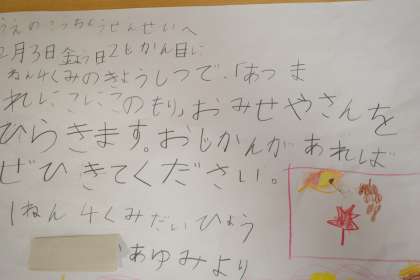 うえのこうちょうせんせいへ
2月3日金よう日2じかん目に
ねん4くみのきょうしつで、「あつま
れにこにこのもり」おみせやさんを
ひらきます。おじかんがあれば
ぜひきてください。
1ねん4くみだいひょう
あゆみより